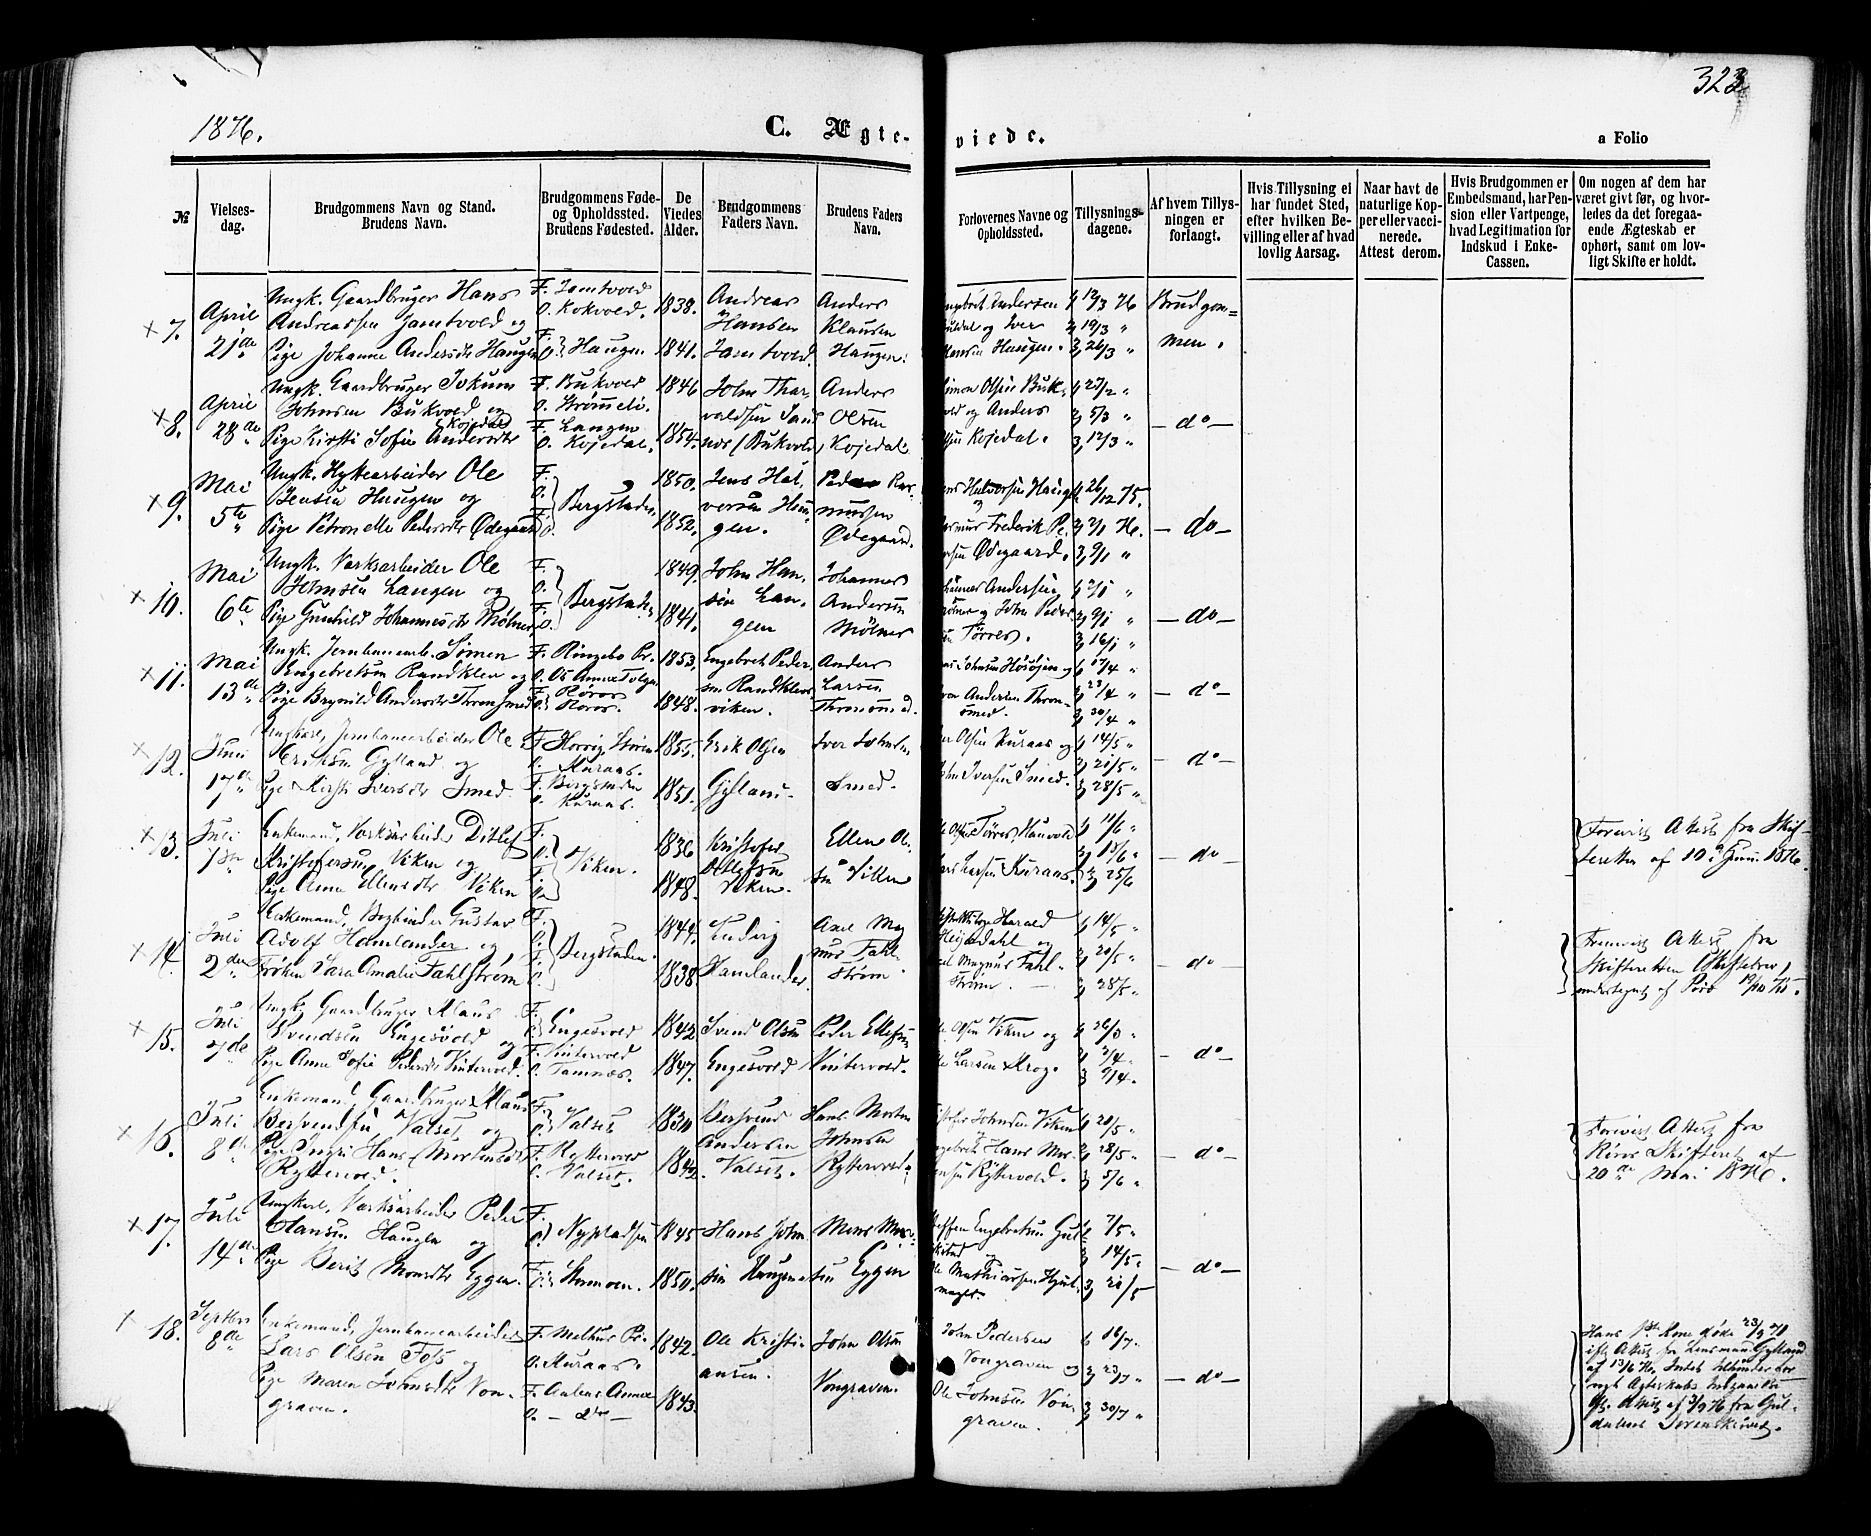 323
1876.
C. Ægte-
viede.
a Folio
№
Vielses-
dag.
Brudgommens Navn og Stand.
Brudens Navn.
Brudgommens Føde-
og Opholdssted.
Brudens Fødested.
De
Viedes
Alder.
Brudgommens
Faders Navn.
Brudens Faders
Navn.
Forlovernes Navne og
Opholdssted.
Tillysnings-
dagene.
Af hvem Tillys-
ningen er
forlangt.
Hvis Tillysning ei
har fundet Sted,
efter hvilken Be-
villing eller af hvad
lovlig Aarsag.
Naar havt de
naturlige Kop-
per eller vacci-
nerede.
Attest derom.
Hvis Brudgommen er
Embedsmand, har Pen-
sion eller Vartpenge,
hvad Legitimation for
Indskud i Enke-
Cassen.
Om nogen af dem har
været givt før, og hvor-
ledes da det foregaa-
ende Ægteskab er
ophørt, samt om lov-
ligt Skifte er holdt.
7. April 21de
Ungk. Gaardbruger Hans
Andreassen Jamtvold og
Pige Johanne Andersdtr Haugen
F. Jamtvold
O. Kokvold.
F. O. Haugen
1838.
1841.
Andreas
Hansen
Jamtvold.
Anders
Klausen
Haugen.
Andersen
og Iver
Haugen.
1, 12/3 76
2, 19/3 "
3, 26/3 "
Brudgom-
men.
8. April 28de
Ungk. Gaardbruger Jokum
Johnsen Bukvold og
Pige Kirsti Sofie Andersdtr Kojedal
F. Bukvold
O. Strømeli.
F. Langen
O. Kojedal.
1846
1854.
John Thar-
valdsen Sund
nes (Bukvold)
Anders
Olsen
Kojedal
Simon Olsen Buk-
vold og Anders
Olsen Kojedal.
1, 27/2 "
2, 5/3 "
3, 12/3 "
— do —
9. Mai 5te
Ungk. Hyttearbeider Ole
Jensen Haugen og
Pige Petronelle Pedersdtr Ødegaard
F. O. F. O. Bergstaden.
1850.
1852.
Jens Hal-
vorsen Hau-
gen.
Peder Ras-
mussen
Ødegaard.
Jens Halvorsen Haugen
Rasmus Frederik Pe-
dersen Ødegaard.
1, 26/12 75.
2, 2/1 76.
3, 9/1 "
— do —
10. Mai 6te
Ungk. Værksarbeider Ole
Johnsen Langen og
Pige Gunhild Johannesdtr Mølner
F. O. F. O. Bergstaden
1849.
1841.
John Han-
sen Lan-
gen
Johannes
Andersen
Mølner
Johannes Andersen
Mølner og John Peder-
sen Tørres.
1, 2/1 "
2, 9/1 "
3, 16/1 "
— do —
11. Mai 13de
Ungk. Jernbanearb. Simen
Engebretsen Randklev og
Pige Brynild Andersdtr Thronsmed
F. Ringebo Pr.
O. Os Annex Tolgen
F. Røros
O. Røros.
1853.
1848.
Engebret Peder-
sen Randklevs-
viken.
Anders
Larsen
Thronsmed.
Johnsen Høsøjen og
Andersen Thron-
smed.
1, 17/4 "
2, 23/4 "
3, 30/4 "
— do —
12. Juni 17de
Ungkarl, Jernbanearbeider Ole
Eriksen Gylland og
Pige Kirsti Iversdtr Smed.
F. Horrig Støren
O. Kuraas.
F. Bergstaden
O. Kuraas.
1855.
1851.
Erik Olsen
Gylland.
Iver Johnsen
Smed.
Olsen Kuraas og
John Iversen Smed.
1, 14/5 "
2, 21/5 "
3, 28/5 "
— do —
13. Juli 1ste
Enkemand, Værksarbeider Ditlef
Kristofersen Viken og
Pige Anne Ellensdtr Viken
F. O. F. O. Viken.
1836
1848.
Kristofer
Ditlefsen
Viken.
Ellen Ol-
sen Viken
Ole Olsen Tørres, Hauvold
Lars Larsen Kuraas.
1, 11/6 "
2, 18/6 "
3, 25/6
— do
Forevist Attest fra Skif-
teretten af 10de Juni 1876.
14. Juli 2den
Enkemand, Bogbinder Gustav
Adolf Hamlander og
Frøken Sara Amalie Fahlstrøm
F. O. F. O. Bergstaden.
1844.
1838.
Ludvig
Hamlander.
Axel Mag-
nus Fahl-
strøm
Harald
Heijerdahl og
Axel Magnus Fahl-
strøm.
1, 14/5 "
2, 20/5 "
3, 28/5 "
— do —
Forevist Attest fra
Skifteretten (Skiftebrev)
undertegnet af Poro 19/10 75.
15. Juli 7de
Ungk. Gaardbruger Klaus
Svendsen Engesvold og
Pige Anne Sofie Pedersdtr Vintervold.
F. O. Engesvold
F. Vintervold
O. Tamnæs.
1842
1847.
Svend Olsen
Engesvold
Peder Ellefsen
Vintervold.
Ole Olsen Viken og
Ole Larsen Krog.
1, 26/3 "
2, 2/4 "
3, 9/4.
— do —
16. Juli 8de
Enkemand, Gaardbruger Klaus
Bersvendsen Valset og
Pige Ingri Hans (Mortensdtr)
Ryttervold.
F. O. Valset
F. Ryttervold
O. Valset.
1830
1842.
Bersvend
Andersen
Valset.
Hans Morten
Johnsen
Ryttervold.
Kristofer Johnsen Viken
Engebret Hans Mor-
tensen Ryttervold.
1, 20/5 "
2, 28/5 "
3, 5/6 "
— do —
Forevist Attest fra
Røros Skifteret af
20de Mai 1876.
17. Juli 14de
Ungkarl, Værksarbeider Peder
Hansen Haugen og
Pige Berit Monsdtr Eggen.
F. O. Nypladsen
F. O. Stormoen.
1845
1850.
Hans John-
sen Haugen
Mons Mon-
sen Eggen
Steffen Engebretsen Gul-
likstad og
Ole Mathiassen Hjul-
mager.
1, 7/5 "
2, 14/5 "
3, 21/5
— do —
18. Septbr 8de
Enkemand, Jernbanearbeider
Lars Olsen Foss og
Pige Maren Johnsdtr Von-
graven.
F. Melhus Pr.
O. Kuraas.
F. Aalens Annex
O. — do —
1842.
1843.
Ole Kristi-
ansen.
John Olsen
Vongraven.
John Pedersen
Vongraven og
Ole Johnsen Von-
graven.
1, 16/7.
2, 23/7 "
3, 30/7 "
— do —
Hans 1ste Kone døde 23/9 70
ifl. Attest fra Lensmand Gylland
af 13/6 76. Intet til Hinder for
nyt Ægteskabs Indgaaelse
ifl. Attest af 5/9 76 fra Gul-
dalens Sorenskriveri.